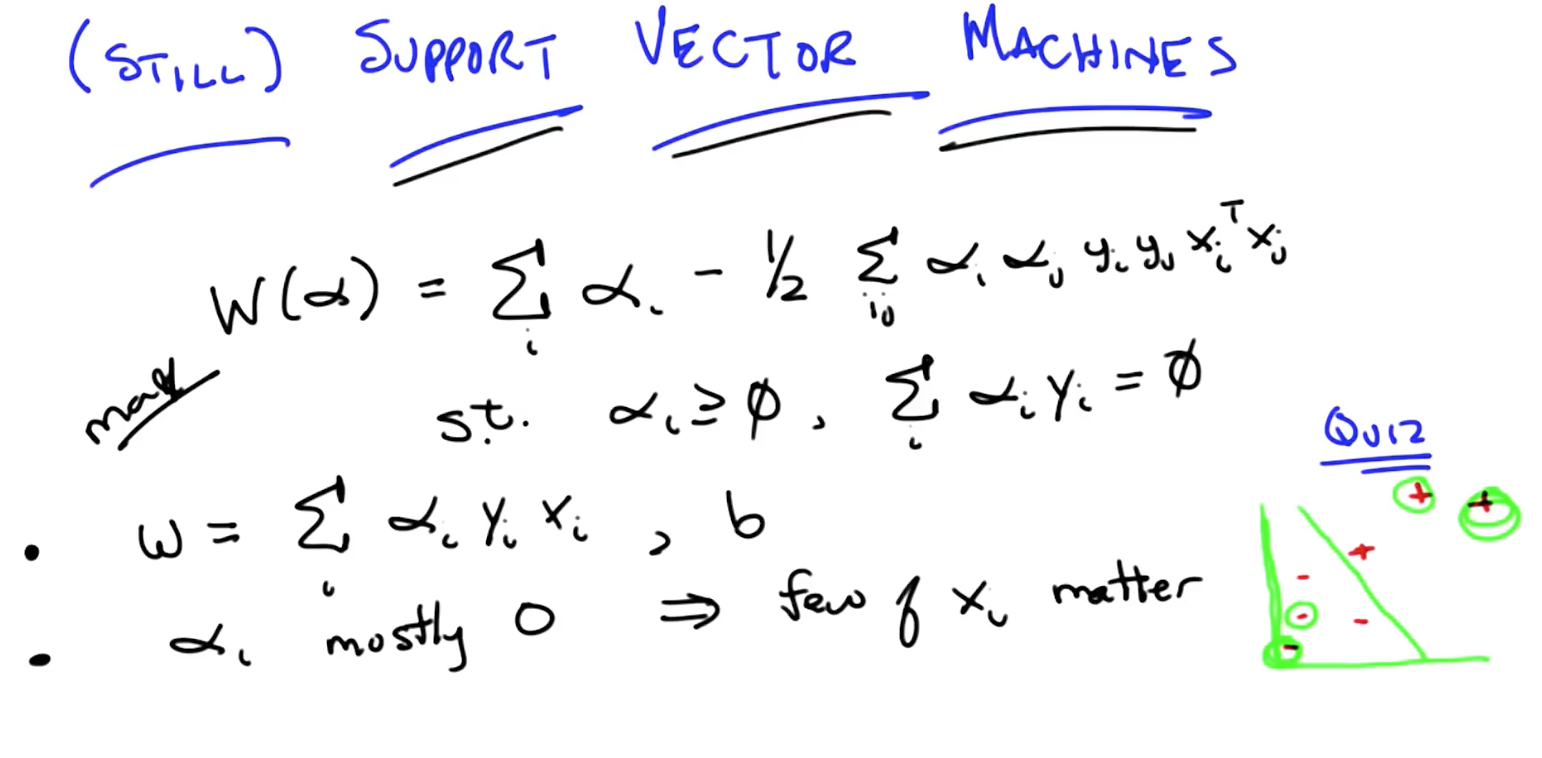 (STILL) SUPPORT VECTOR MACHINES
W(α) = Σ_i α_i - 1/2 Σ_ij α_i α_j y_i y_j x_i^T x_j
max
s.t. α_i ≥ ∅, Σ_i α_i y_i = ∅
QUIZ
• w = Σ_i α_i y_i x_i, b
• α_i mostly 0 ⇒ few of x_i matter
+ +
+
-
- -
-